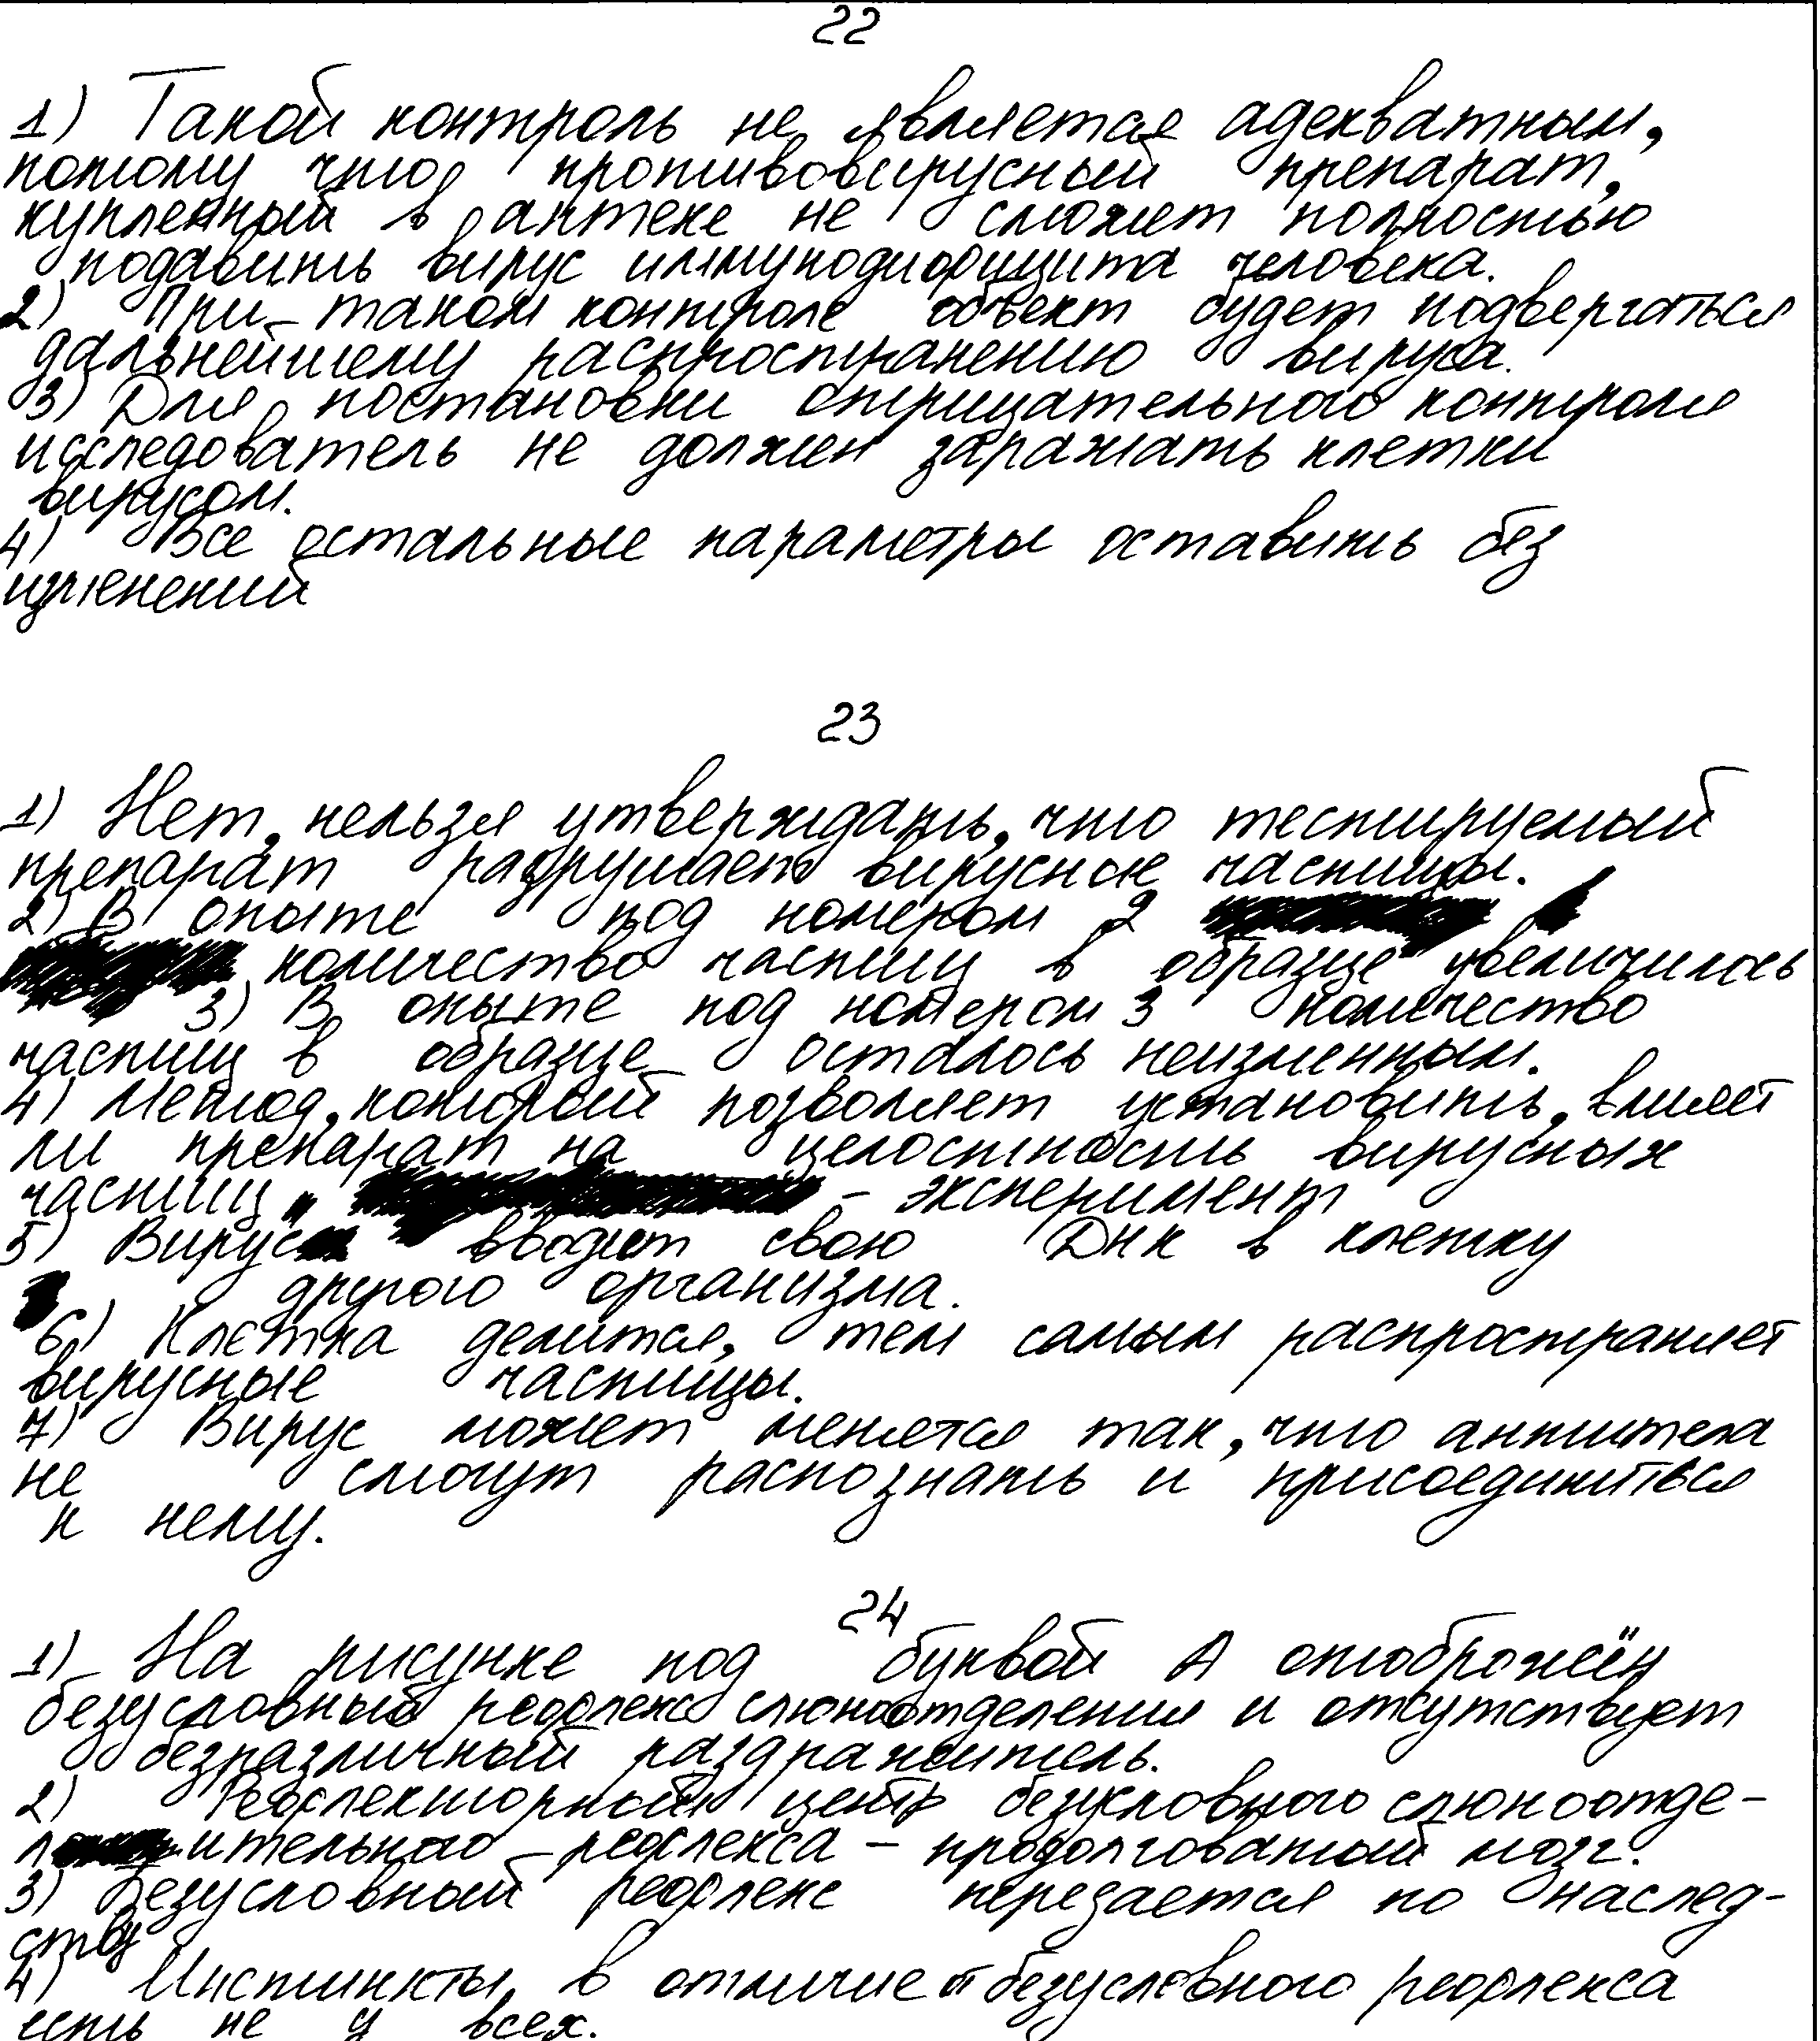 22
1) Такой контроль не является адекватным,
потому что противовирусный препарат,
купленный в аптеке не сможет полностью
подавить вирус иммунодифицита человека.
2) При таком контроле объект будет подвергаться
дальнейшему распространению вируса.
3) Для постановки отрицательного контроля
исследователь не должен заражать клетки
вирусом.
4) Все остальные параметры оставить без
изменений
23
1) Нет, нельзя утверждать, что тестируемый
препарат разрушает вирусные частицы.
2) В опыте под номером 2
количество частиц в образце увеличилось
3) В опыте под номером 3 количество
частиц в образце осталось неизменным.
4) Метод, который позволяет установить, влияет
ли препарат на целостность вирусных
частиц, - эксперимент
5) Вирус вводит свою ДНК в клетку
другого организма.
6) Клетка делится, тем самым распространяет
вирусные частицы.
7) Вирус может менятся так, что антитела
не смогут распознать и присоединиться
к нему.
24
1) На рисунке под буквой А отображён
безусловный рефлекс слюноотделения и отсутствует
безразличный раздражитель.
2) Рефлекторный центр безусловного слюноотде-
лительного рефлекса - продолговатый мозг.
3) Безусловный рефлекс передается по наслед-
ству
4) Инстинкты, в отличие от безусловного рефлекса
есть не у всех.